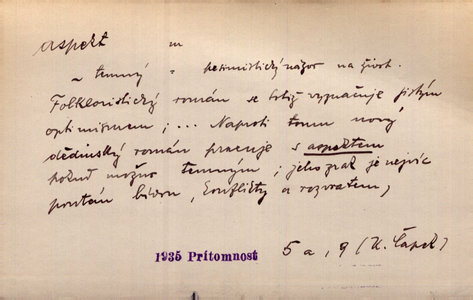 aspekt m
~ temný = pesimistický názor na život.
Folkloristický román se totiž vyznačuje jistým
optimismem; ... Naproti tomu nový
dědinský román pracuje s aspektem
pokud možno temným; jeho zrak je nejvíc
poután bídou, konflikty a rozvratem,
1935 Prítomnost 5 a, 9 (K. Čapek)